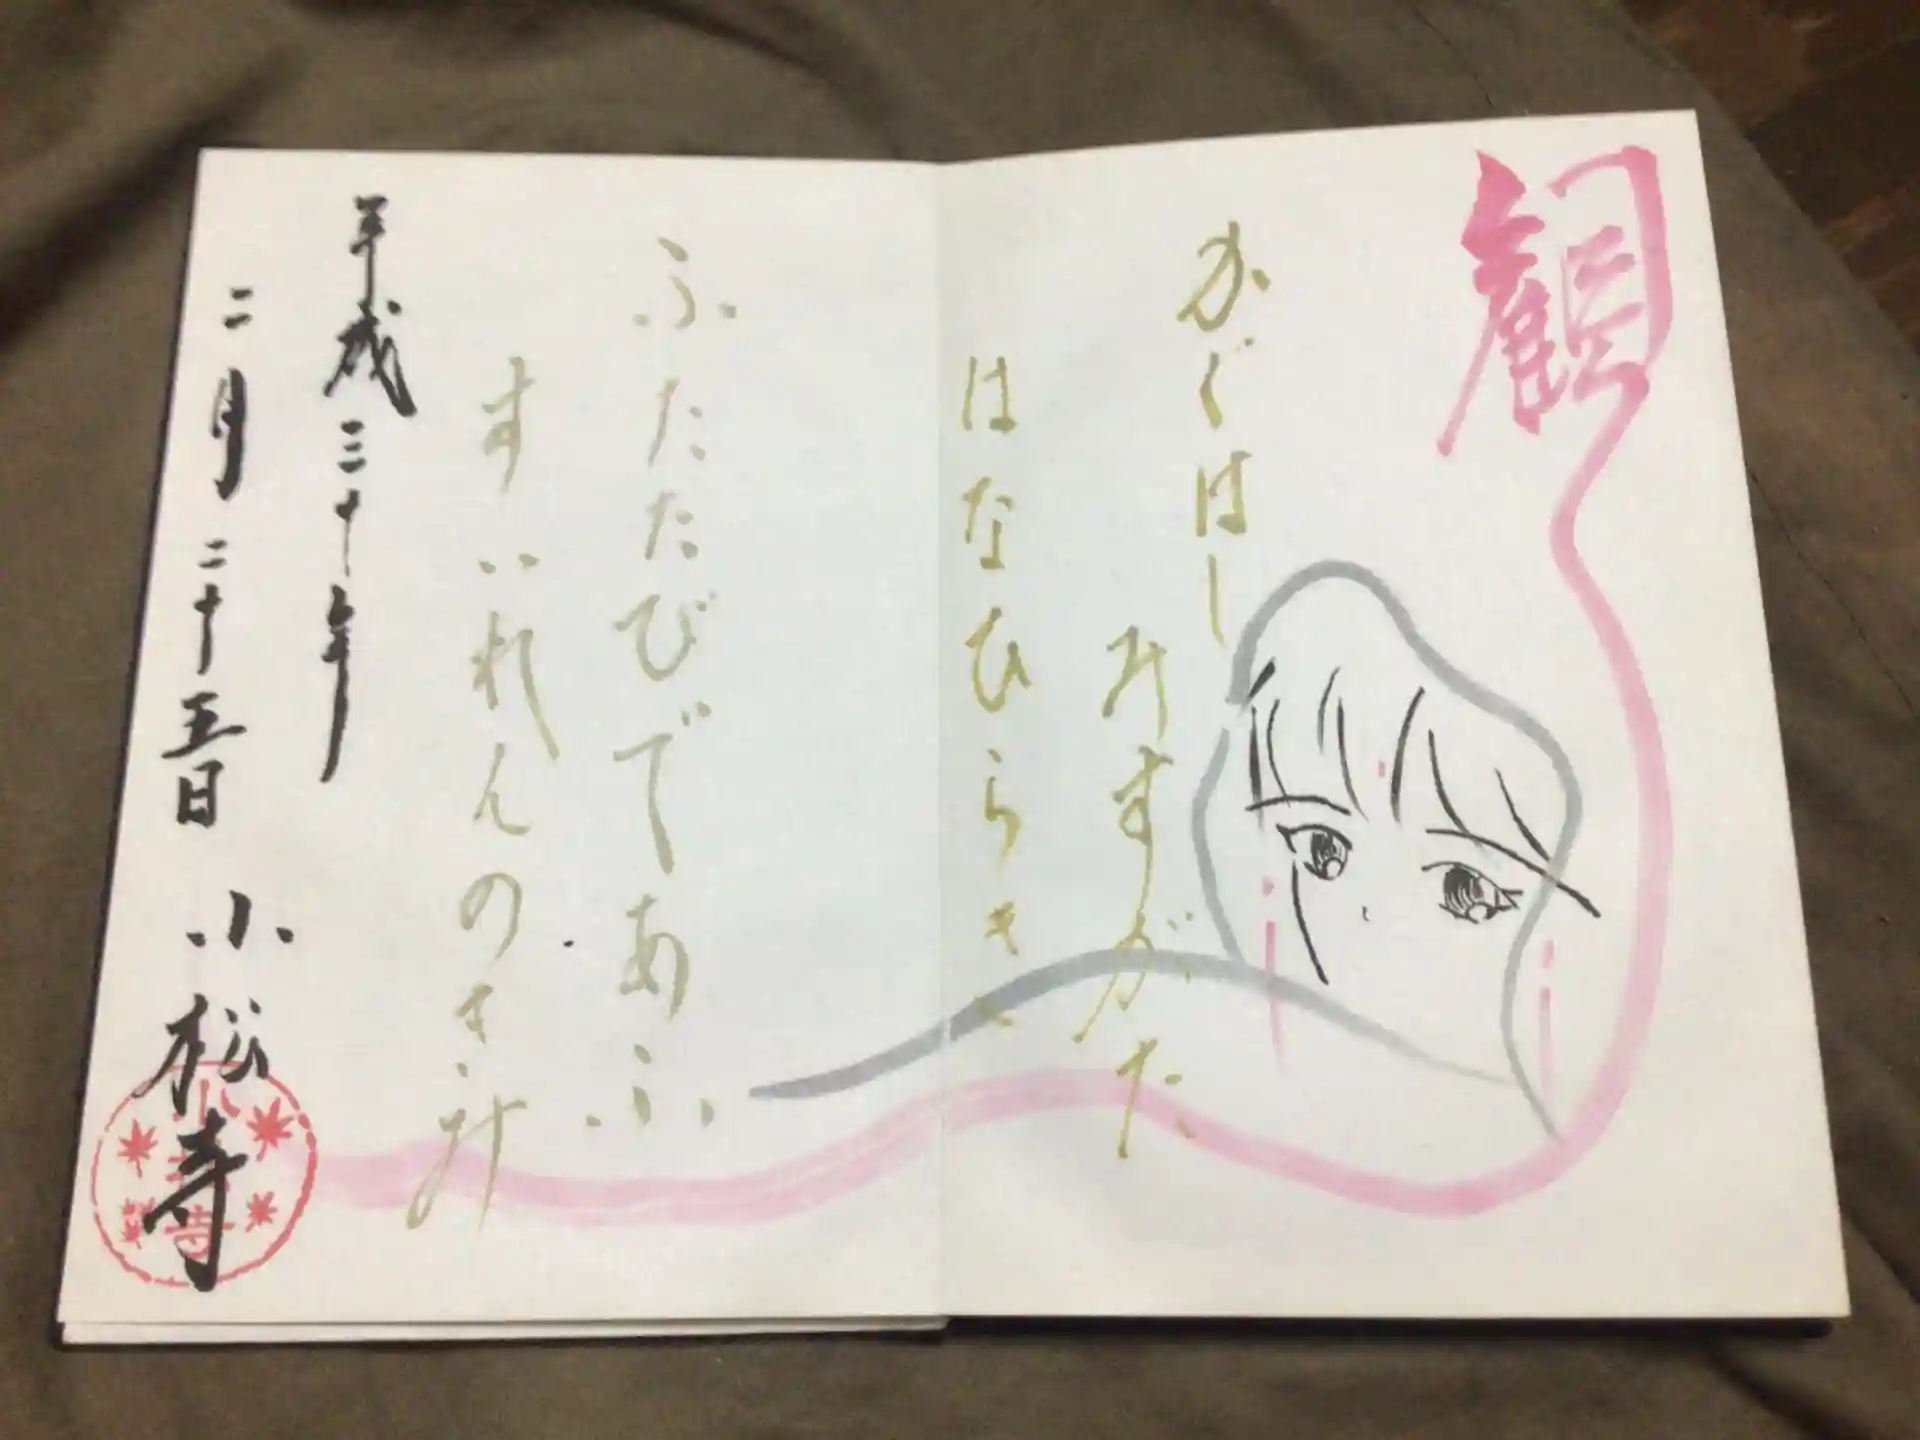 観
かぐはし
みすがた
はなひらきて
ふたたびであふ
すいれんのきみ
平成三十年
二月二十五日 小松寺